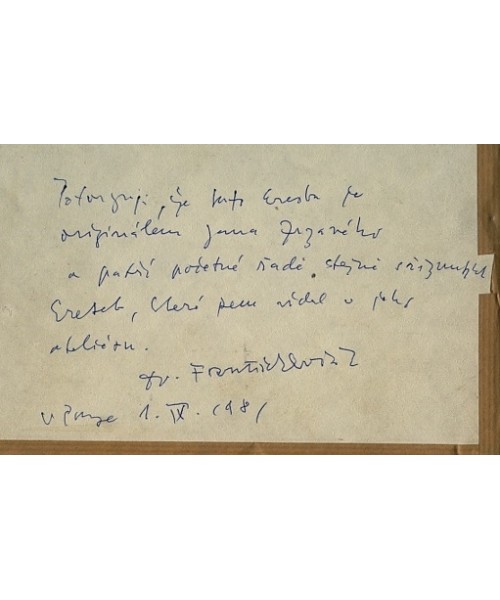 Potvrzuji, že tato kresba je
originálem Jana Zrzavého
a patří početné řadě stejně
kreseb, které jsem viděl v jeho
atelieru.
dr. František
V Praze 1. IX. 1981